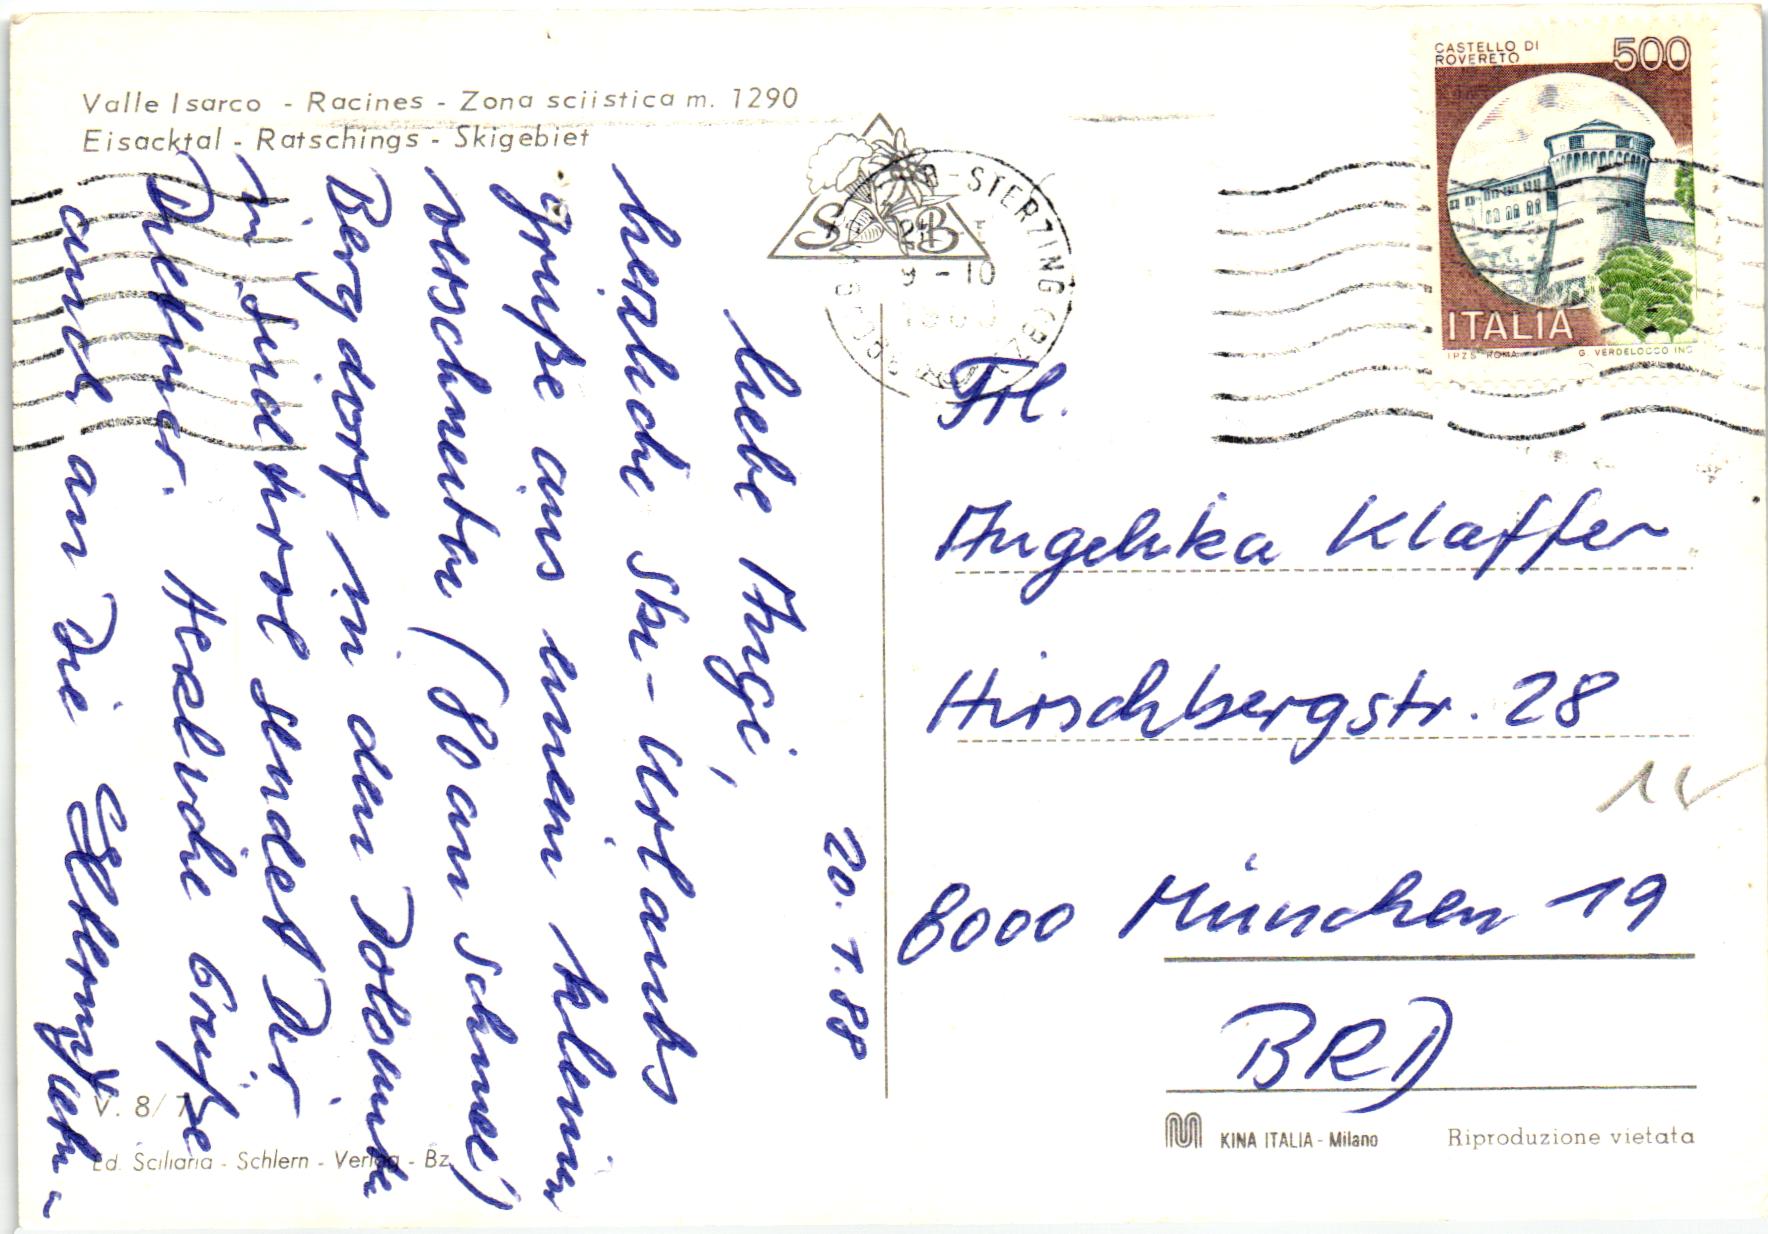 Valle Isarco - Racines - Zona sciistica m. 1290
Eisacktal - Ratschings - Skigebiet
20.1.88
Liebe Angi,
herzliche Ski-Urlaubs
grüße aus einem kleinen
verschneiten (80 cm Schnee)
Bergdorf in den Dolomiten
in Südtirol sendet Dir
Dietmar. Herzliche Grüße
auch an Die
V. 8/7
Ed. Sciliaria - Schlern - Verlag - Bz
CASTELLO DI
ROVERETO
500
ITALIA
I.P.Z.S. ROMA
G. VERDELOCCO INC
STERZING (BZ)
9-10
S B
Frl.
Angelika Klaffer
Hirschbergstr. 28
8000 München 19
BRD
KINA ITALIA - Milano
Riproduzione vietata